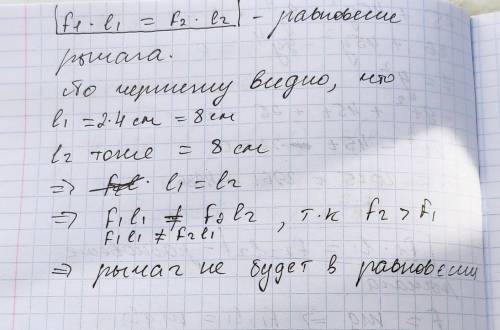 f1 · l1 = f2 · l2 - равновесие
рычага.
По чертежу видно, что
l1 = 2·4 см = 8 см
l2 тоже = 8 см
=> l1 = l2
=> f1 l1 ≠ f2 l2, т.к f2 > f1
f1 l1 ≠ f2 l1
=> рычаг не будет в равновесии